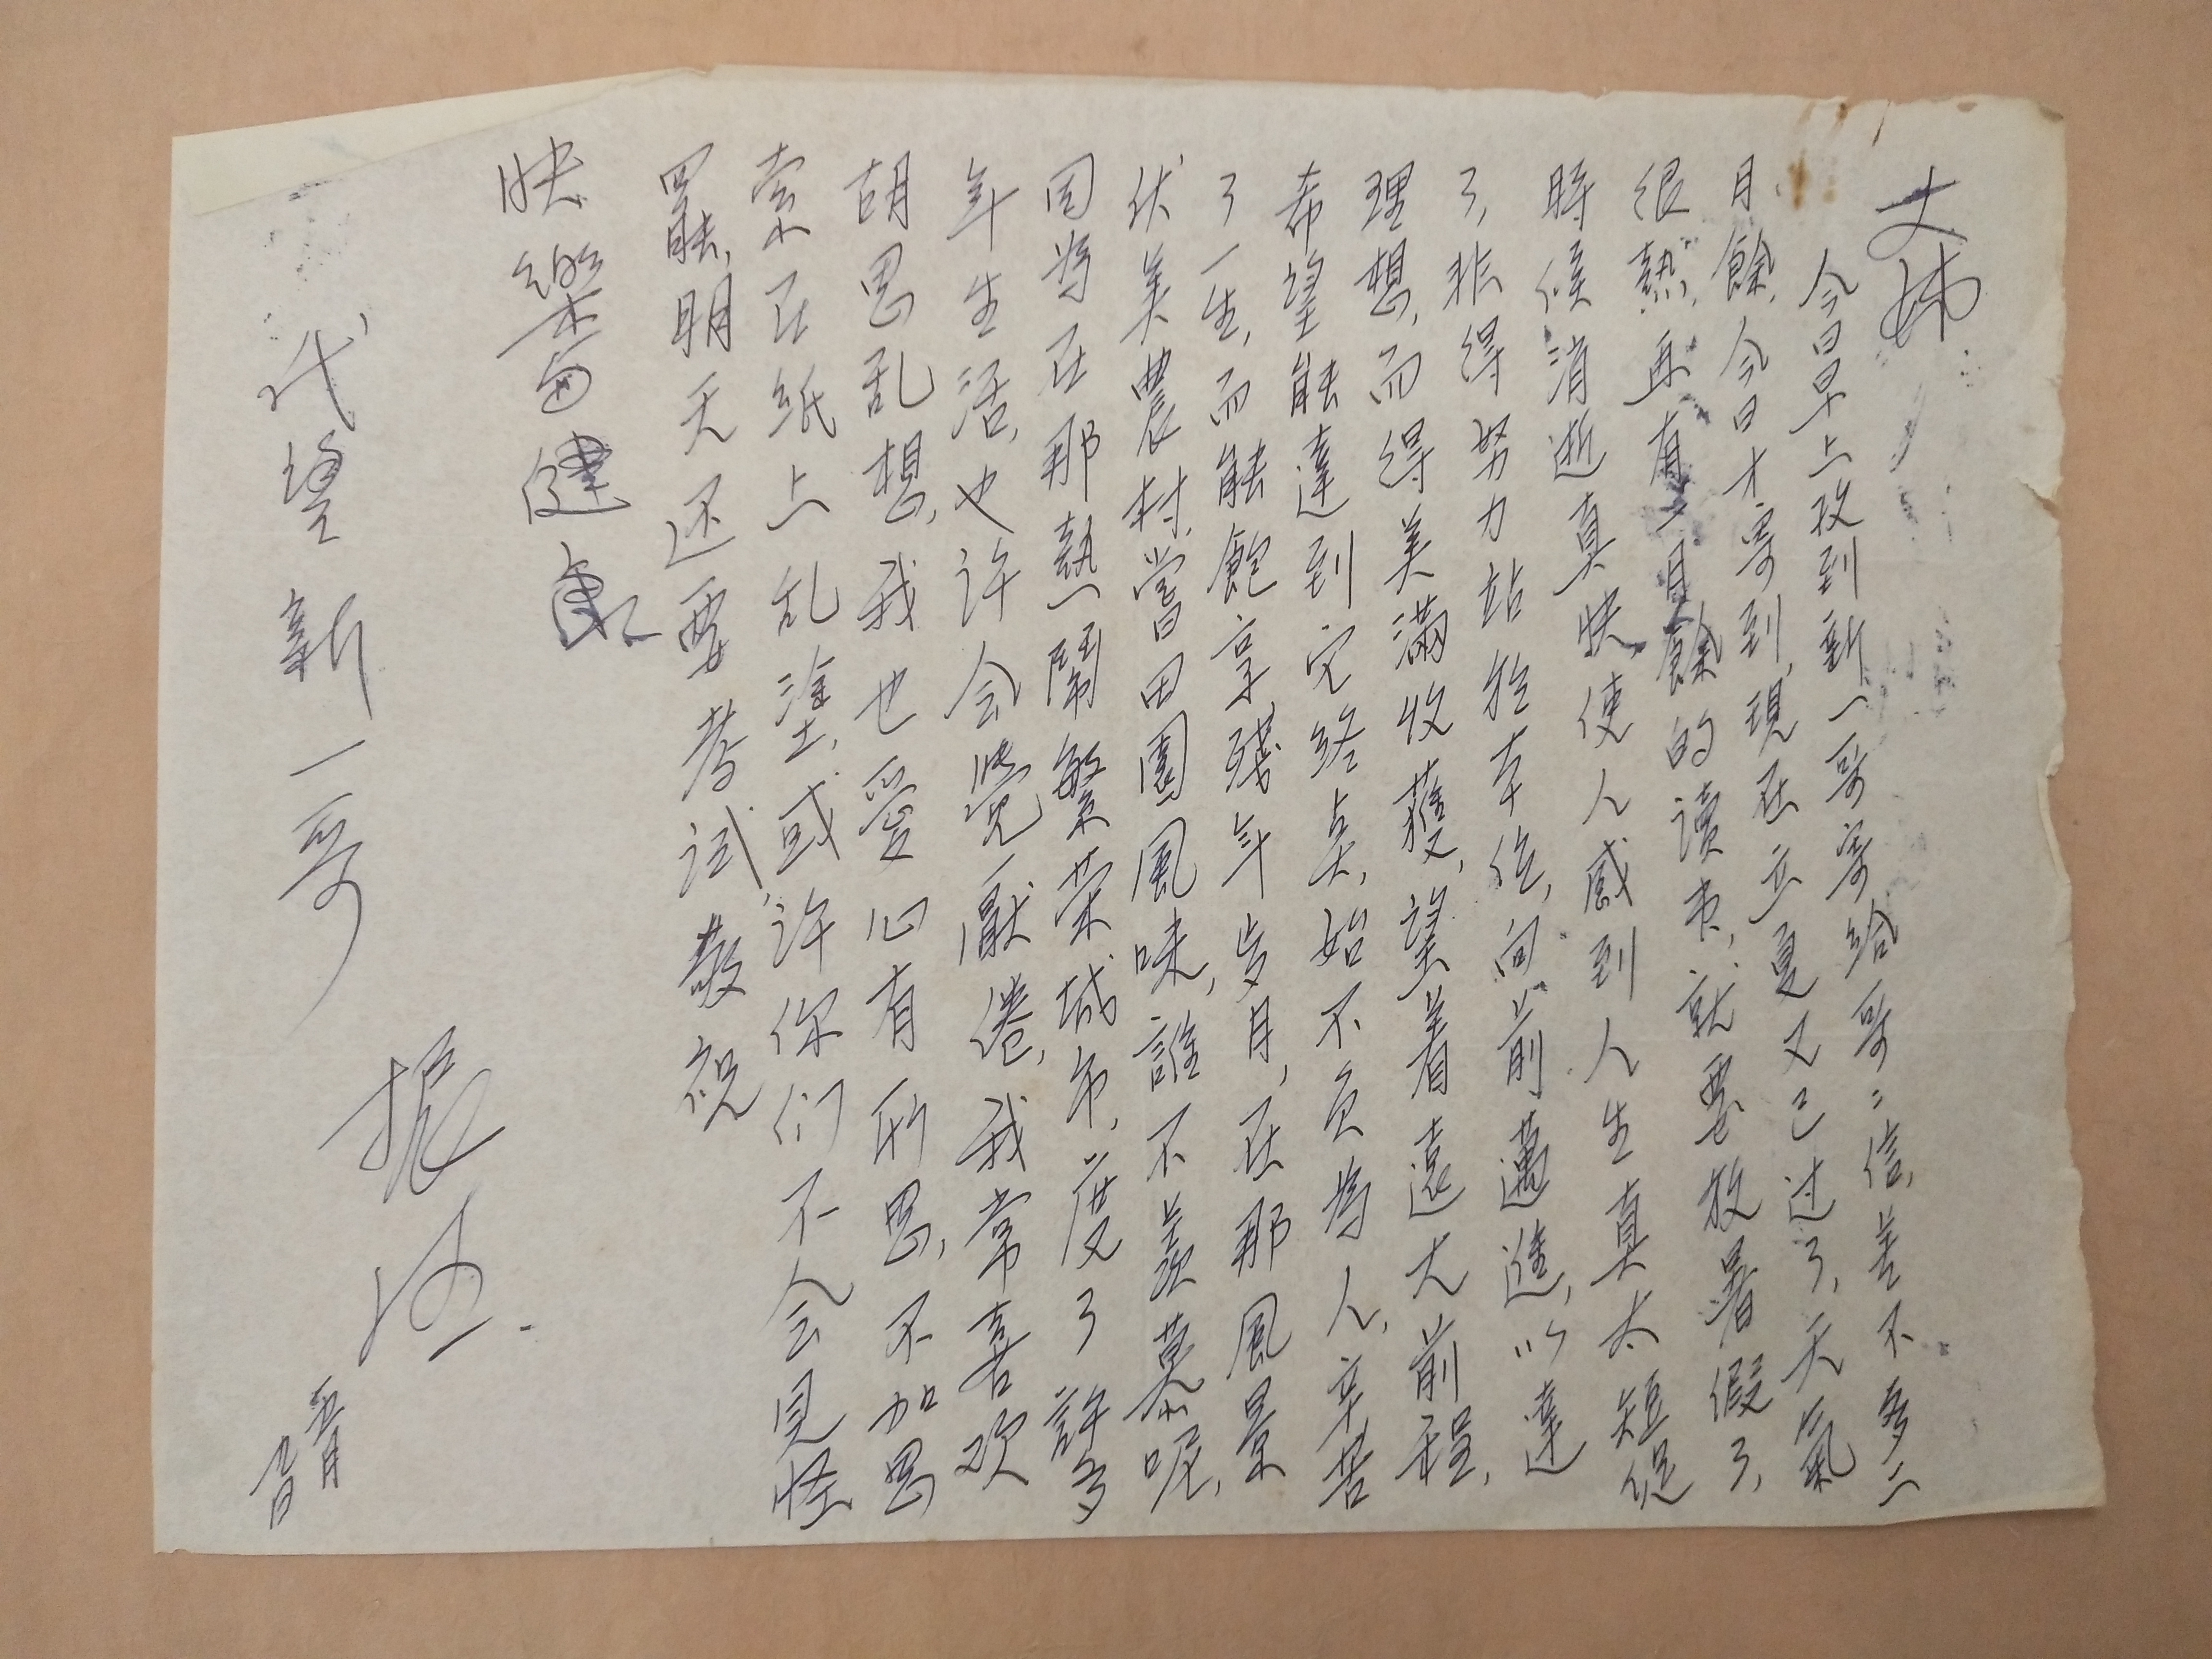 文姊
今日早上收到新一哥寄給哥二信,差不多一
月餘,今日才寄到,現在立夏又已过了,天氣
很熱,再有月餘的讀书,就要放暑假了,
時候消逝真快,使人感到人生真太短促
了,非得努力站於本位,向前邁進,以達
理想,而得美滿收獲,望着遠大前程,
希望能達到它終点,始不負為人,辛苦
了一生,而能飽享殘年岁月,在那風景
伏美農村,嘗田園風味,誰不羨慕呢,
因為在那熱鬧繁荣城市,度了許多
年生活,也许会覺厭倦,我常喜欢
胡思乱想,我也爱心有所思,不加思
索在纸上乱塗,或许你们不会見怪
罷,明天还要考試,敬祝
快樂並健康
代望新一哥
振
五月